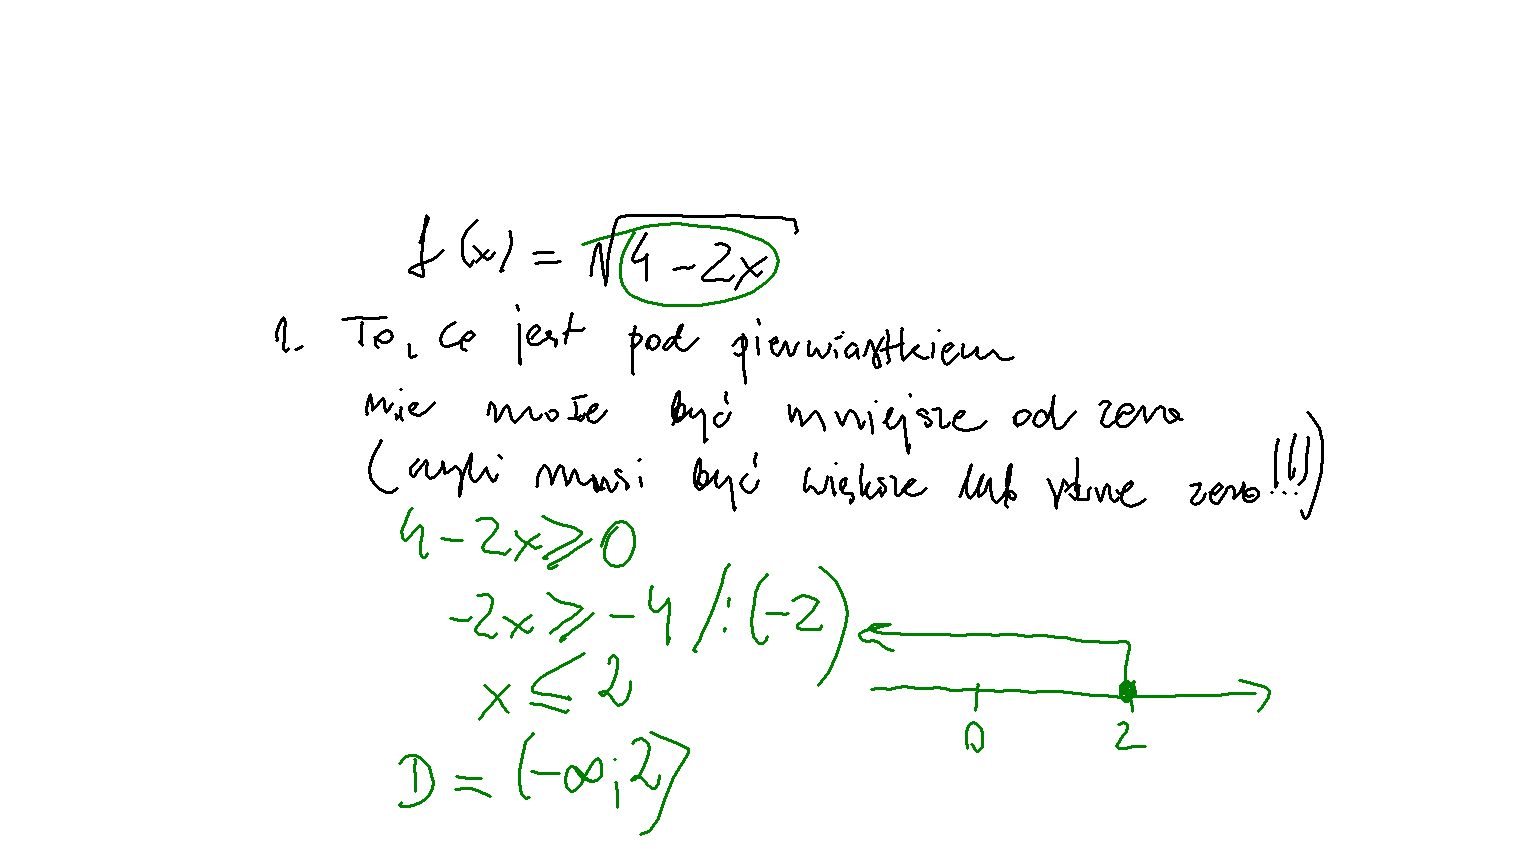 f(x) = √4-2x
1. To, co jest pod pierwiastkiem
nie może być mniejsze od zera
(czyli musi być większe lub równe zero!!!)
4-2x⩾0
-2x⩾-4 /:(-2)
x ≤ 2
0 2
D = (-∞; 2⟩